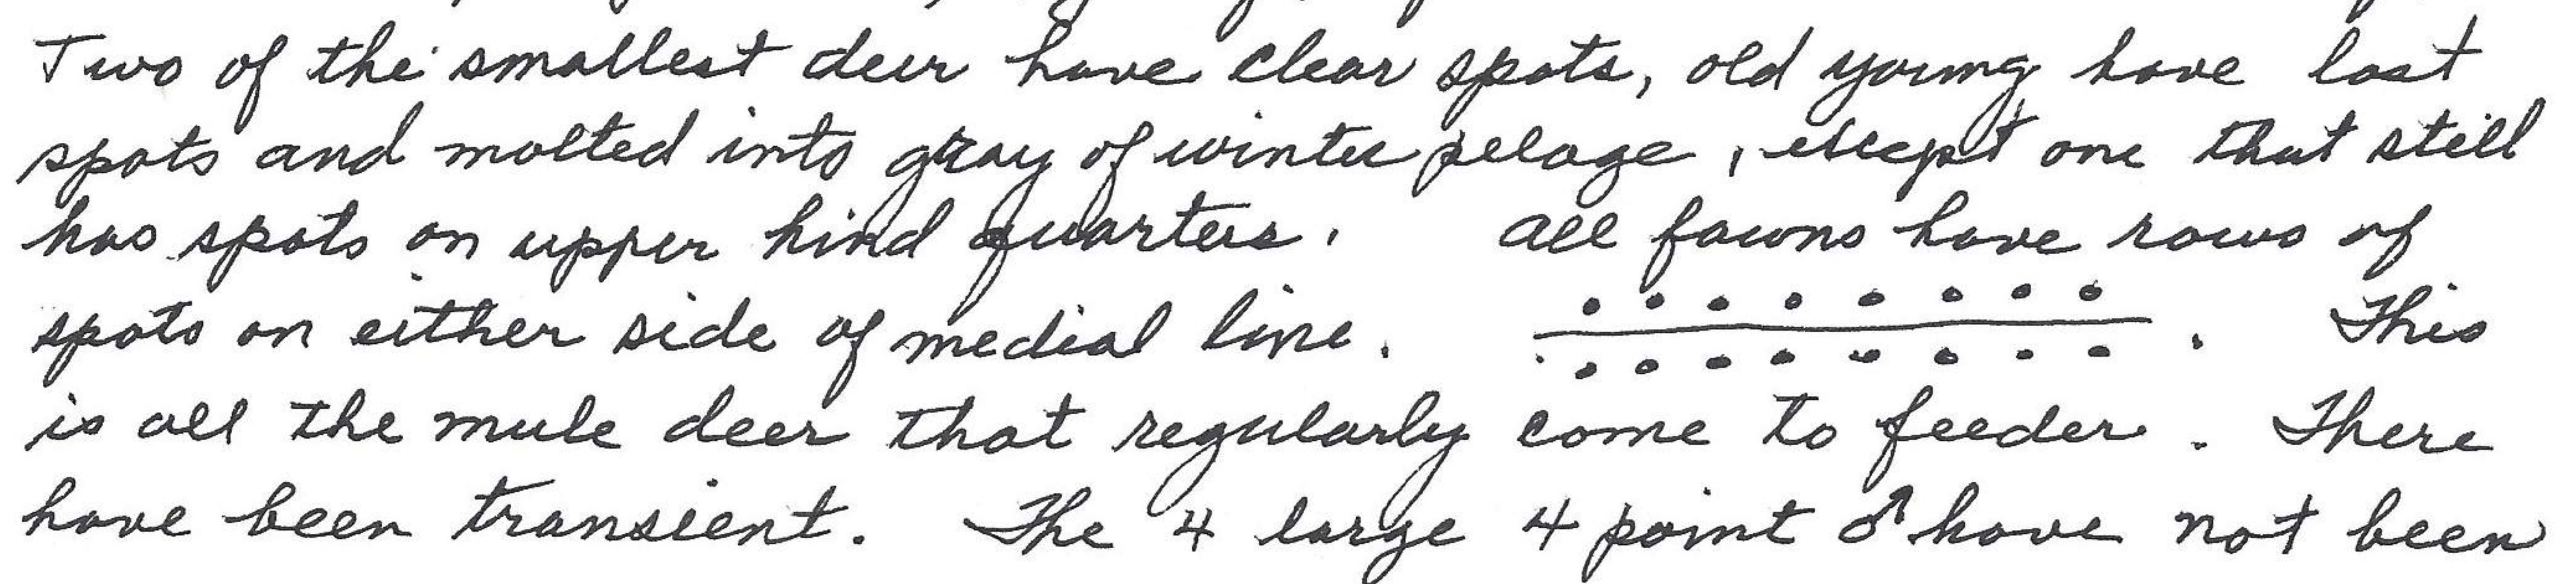 Two of the smallest deer have clear spots, old young have lost
spots and molted into gray of winter pelage, except one that still
has spots on upper hind quarters. All fawns have rows of
spots on either side of medial line. . This
is all the mule deer that regularly come to feeder. There
have been transient. The 4 large 4 point ♂ have not been